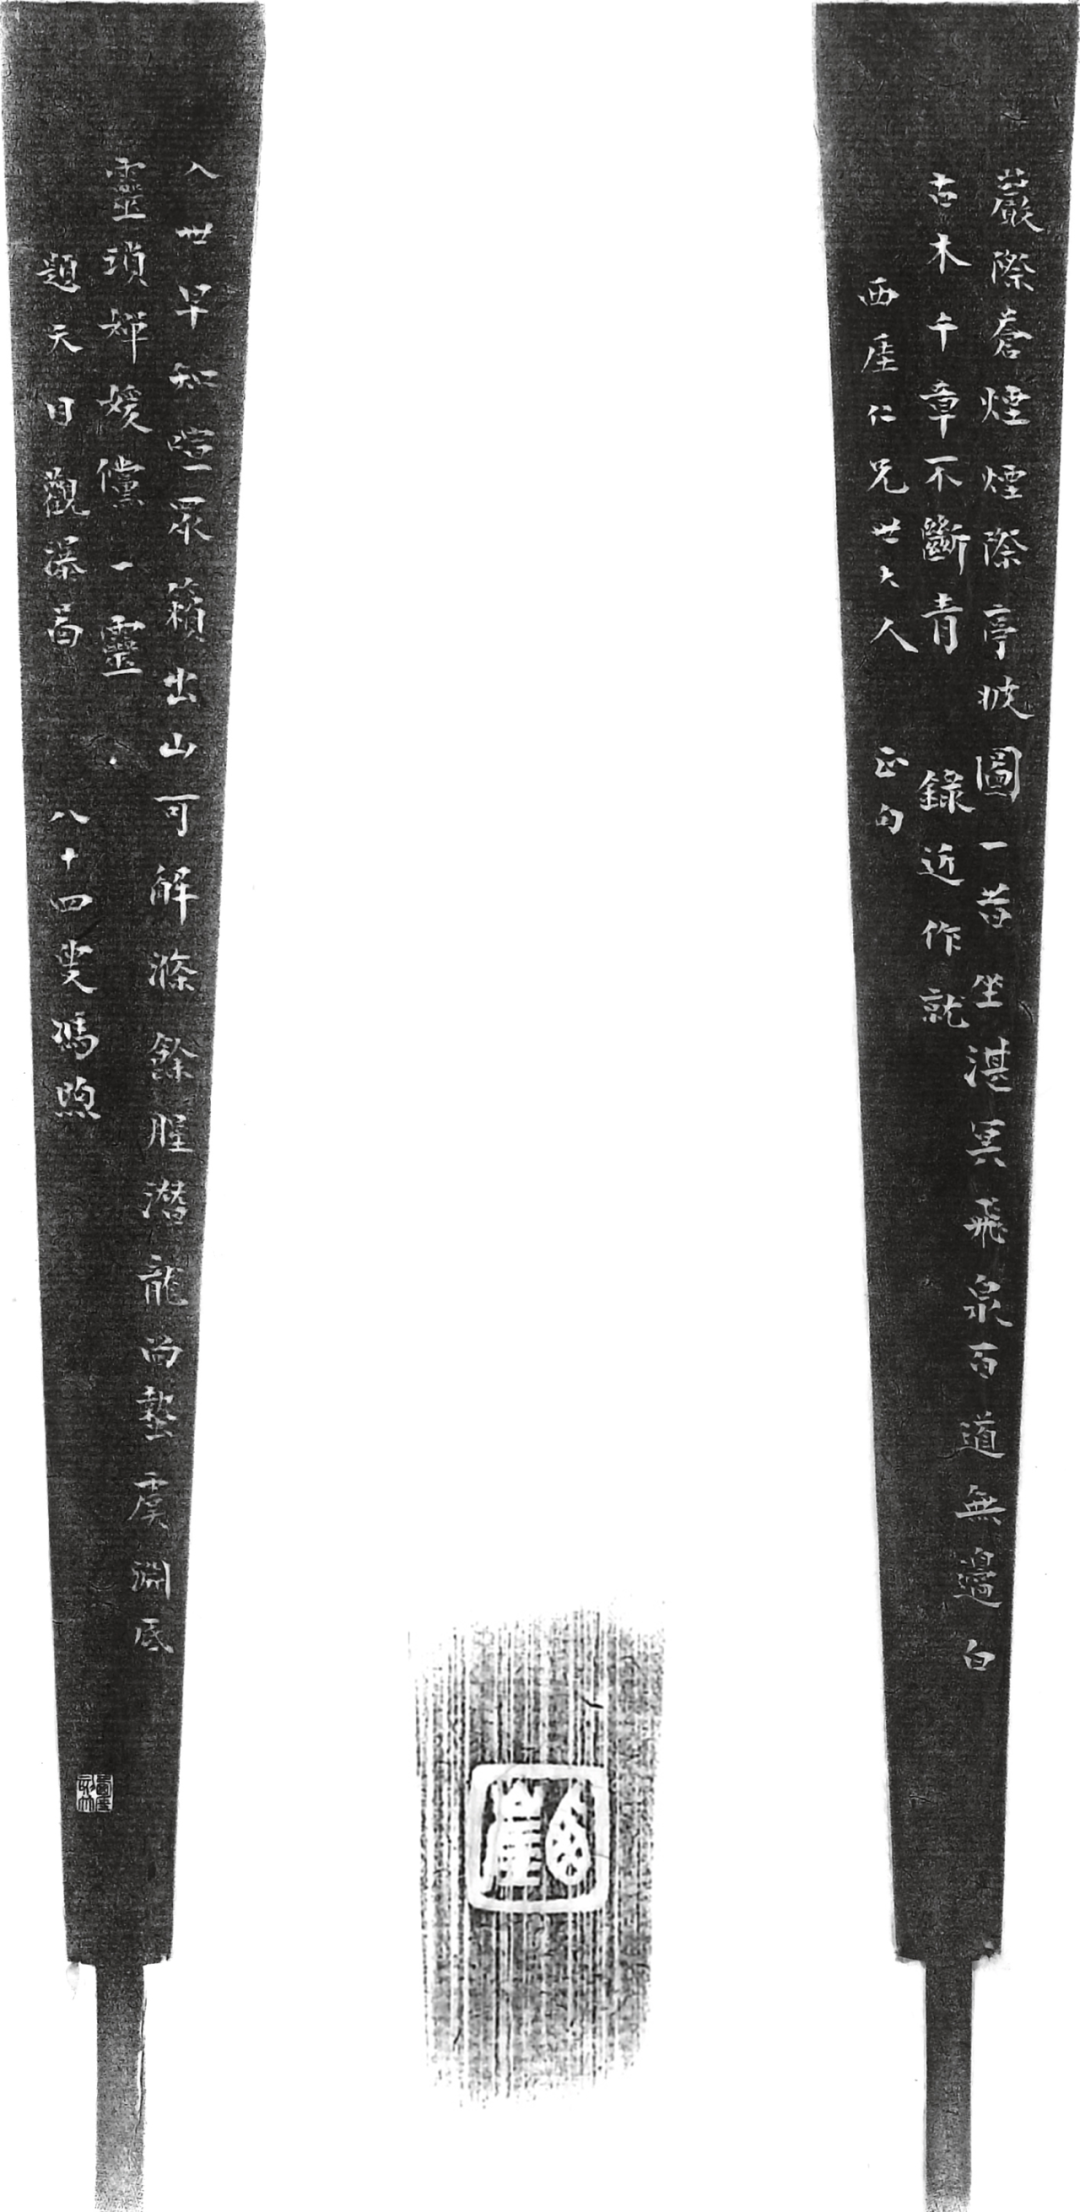 巖際蒼煙煙際亭披圖一昔坐湛冥飛泉百道無邊白
古木千章不斷青 錄近作就
西厓仁兄世大人 正句
入世早知喧眾籟出山可解滌餘腥潛龍尚蟄虞淵底
靈瑣嬋媛儻一靈
題天目觀瀑啚 八十四叟馮煦